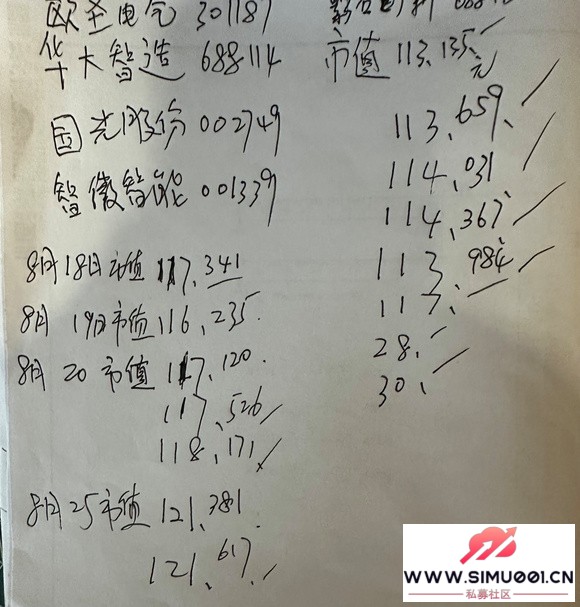 欧圣电气 301187
华大智造 688114
国光股份 002749
智微智能 001339
8月18日市值 117,341
8月 19日市值 116,235.
8月 20 市值 117,120.
117,526
118,171
8月25市值 121,381.
121,617.
市值 113,135元
113,659.
114,031
114,367
113,984
117.
28.
30.
WWW.SIMU001.CN
私募社区